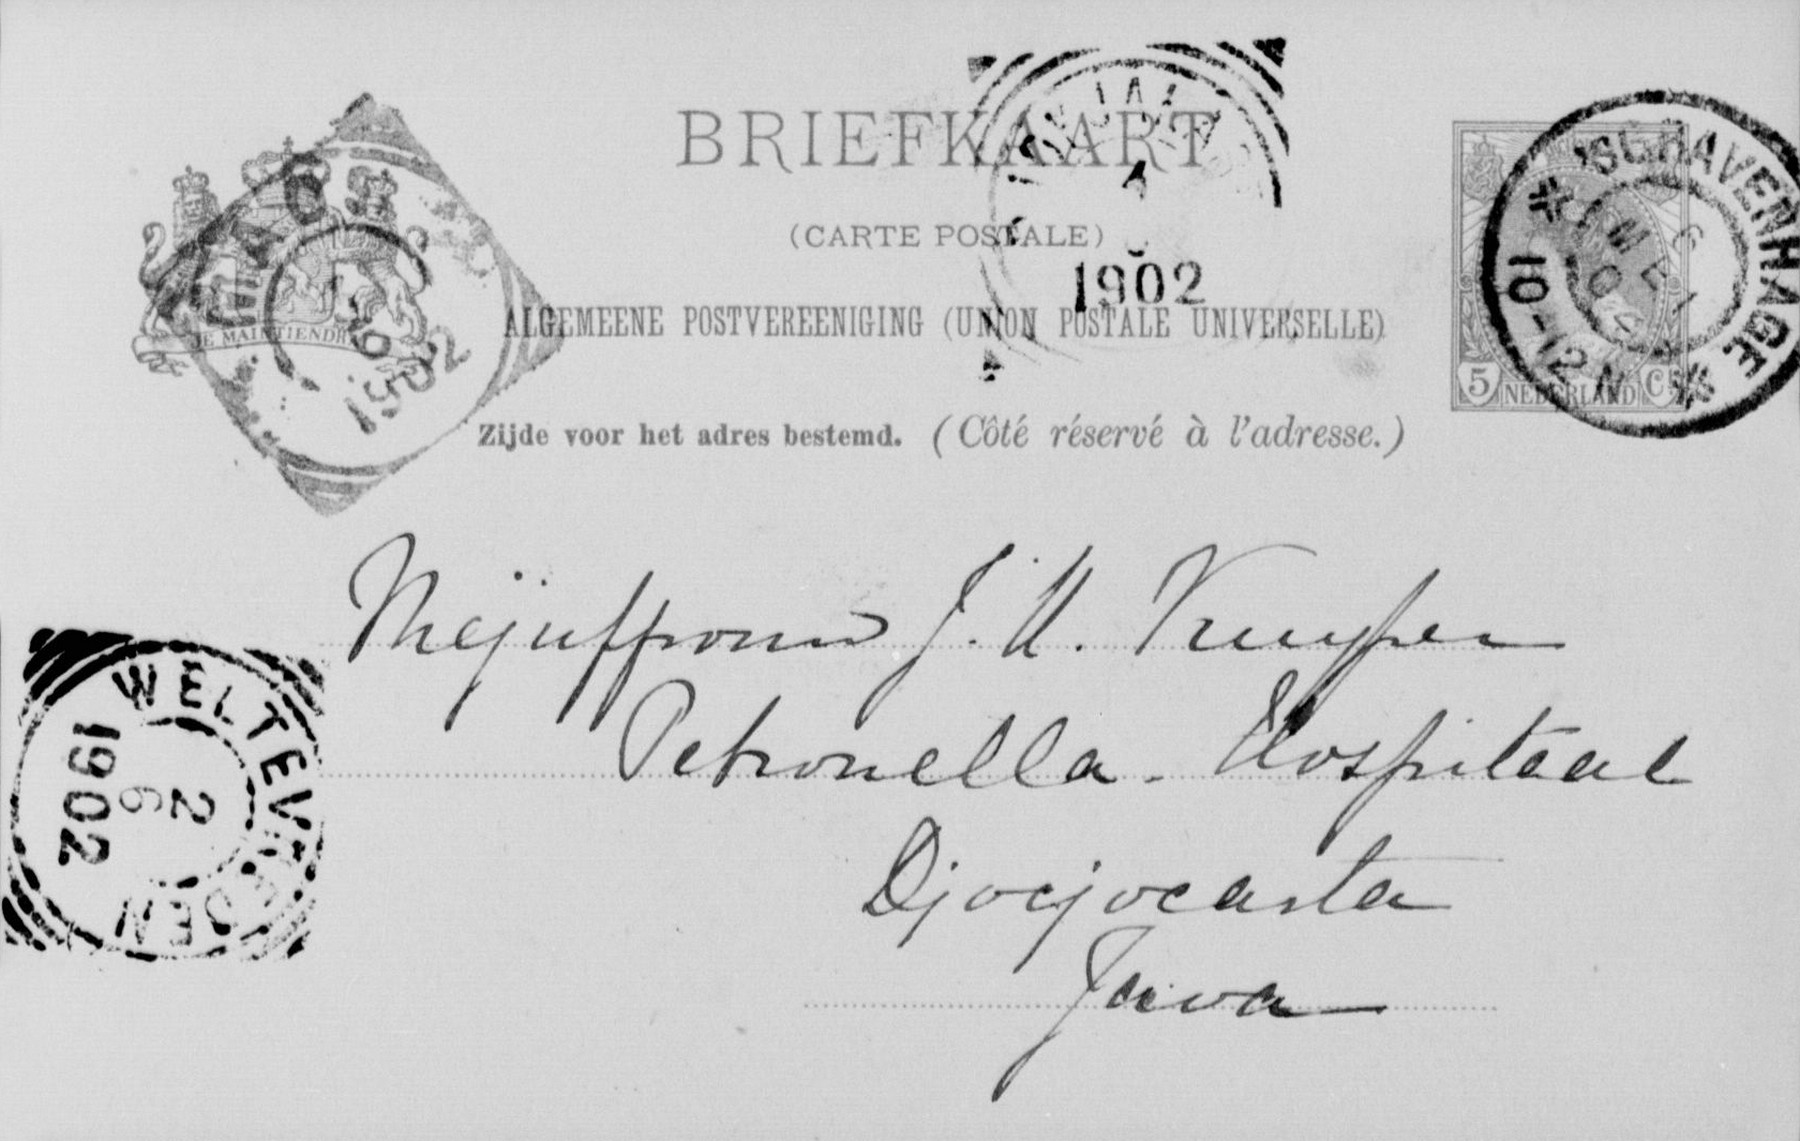 BRIEFKAART
(CARTE POSTALE)
ALGEMEENE POSTVEREENIGING (UNION POSTALE UNIVERSELLE)
Zijde voor het adres bestemd. (Côté réservé à l'adresse.)
JE MAINTIENDRAI
1902
1902
'SGRAVENHAGE
6 MEI 02
10-12 N
5 NEDERLAND Ct
WELTEVREDEN
2 6 1902
Mejuffrouw J. H. Kuyper
Petronella-Hospitaal
Djocjocarta
Java